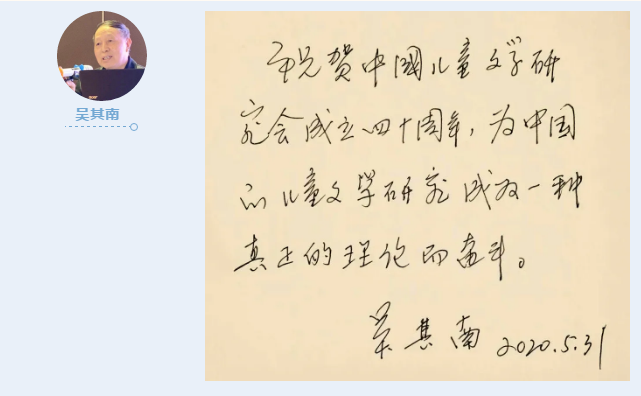 吴其南
祝贺中国儿童文学研
究会成立四十周年，为中国
的儿童文学研究成为一种
真正的理论而奋斗。
吴其南 2020.5.31